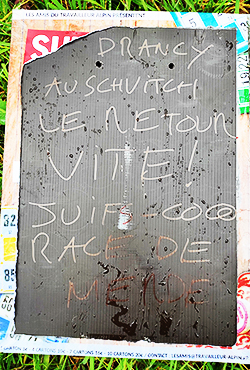 LES AMIS DU TRAVAILLEUR ALPIN PRÉSENTENT
DRANCY
AUSCHVITCH
LE RETOUR
VITE!
JUIFS-COCO
RACE DE
MERDE